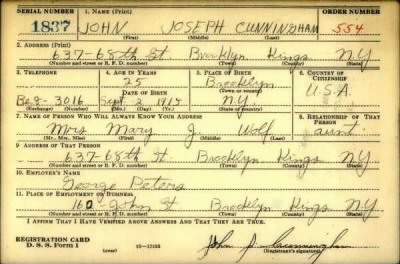 SERIAL NUMBER 1. NAME (Print) ORDER NUMBER
1837 JOHN JOSEPH CUNNINGHAM 554
(First) (Middle) (Last)
2. ADDRESS (Print)
637-68th St. Brooklyn Kings N.Y
(Number and street or R. F. D. number) (Town) (County) (State)
3. TELEPHONE 4. AGE IN YEARS 5. PLACE OF BIRTH 6. COUNTRY OF CITIZENSHIP
25 Brooklyn
DATE OF BIRTH (Town or county) U.S.A.
8-3016 Sept 2 1915 N.Y.
(Exchange) (Number) (Mo.) (Day) (Yr.) (State or country)
7. NAME OF PERSON WHO WILL ALWAYS KNOW YOUR ADDRESS 8. RELATIONSHIP OF THAT PERSON
Mrs Mary J Wolf aunt
(Mr., Mrs., Miss) (First) (Middle) (Last)
9. ADDRESS OF THAT PERSON
637-68th St. Brooklyn Kings N.Y
(Number and street or R. F. D. number) (Town) (County) (State)
10. EMPLOYER'S NAME
George Peters
11. PLACE OF EMPLOYMENT OR BUSINESS
160 - John St Brooklyn Kings N.Y
(Number and street or R. F. D. number) (Town) (County) (State)
I AFFIRM THAT I HAVE VERIFIED ABOVE ANSWERS AND THAT THEY ARE TRUE.
REGISTRATION CARD
D. S. S. Form 1 John J Cunningham
(Registrant's signature)